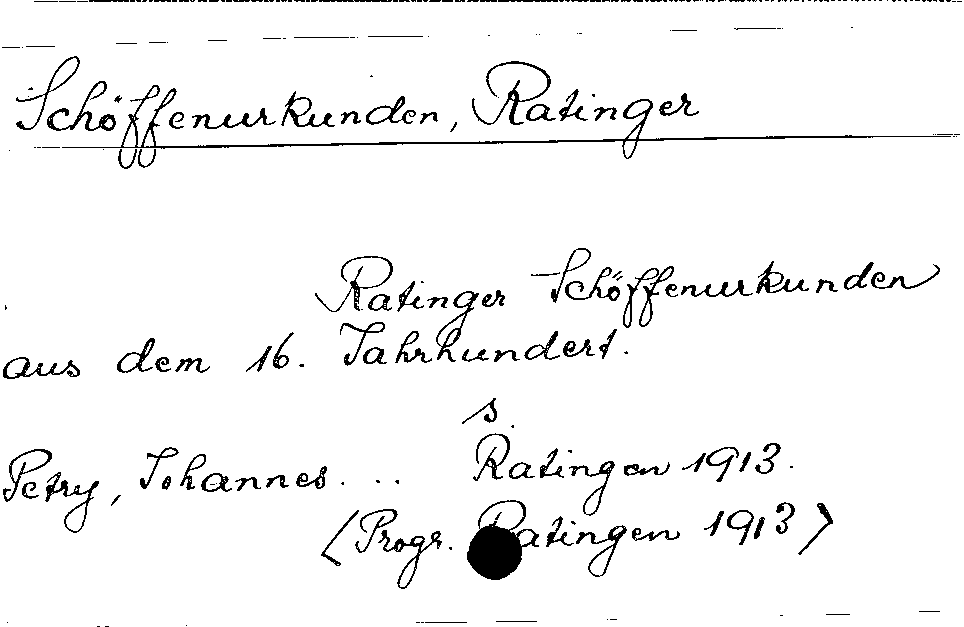 Schöffenurkunden, Ratinger
Ratinger Schöffenurkunden
aus dem 16. Jahrhundert.
s.
Petry, Johannes. ... Ratingen 1913.
(Progr. Ratingen 1913)